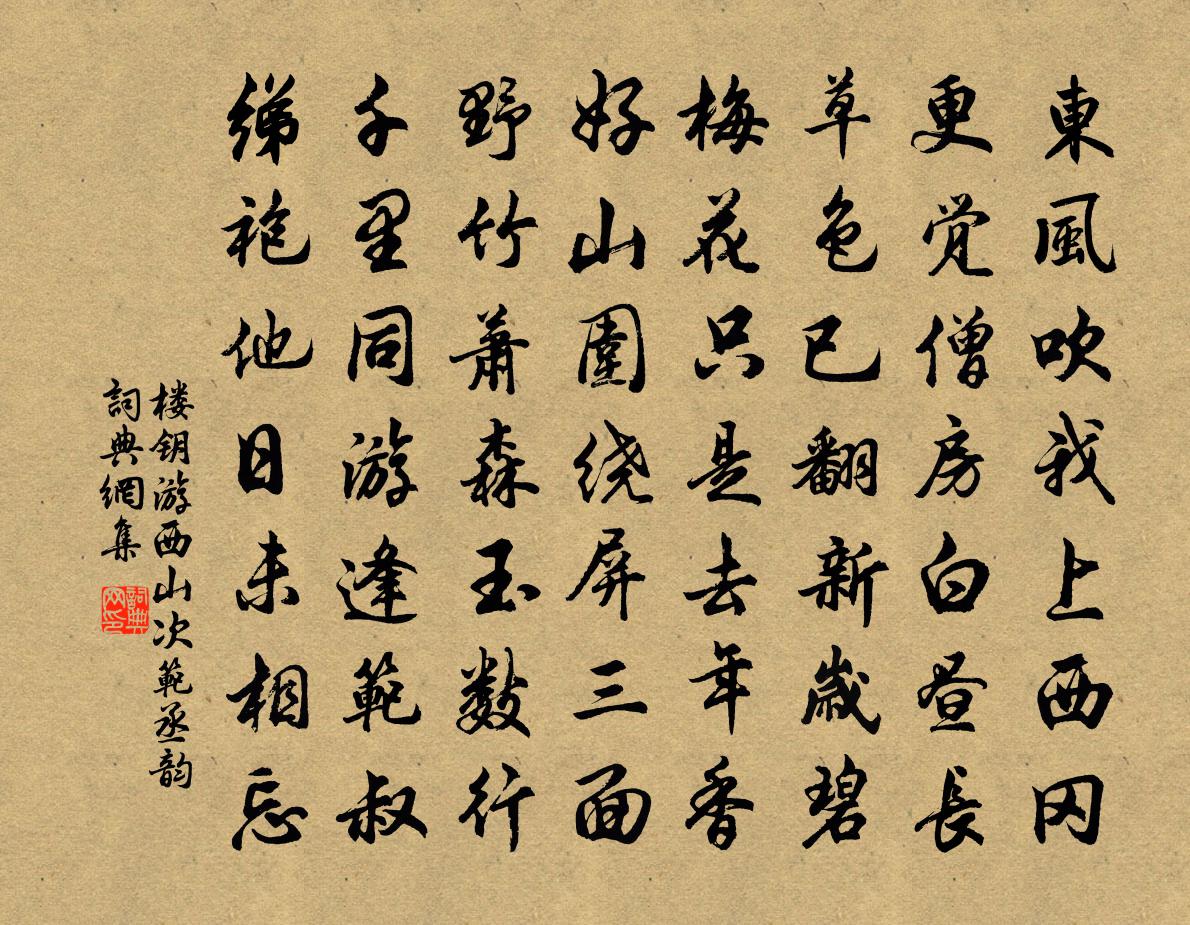 東風吹我上西冈
更觉僧房白昼長
草色已翻新歲碧
梅花只是去年香
好山圍绕屏三面
野竹萧森玉数行
千里同游逢範叔
绨袍他日未相忘
楼钥游西山次範丞韵
詞典網集
詞典网印